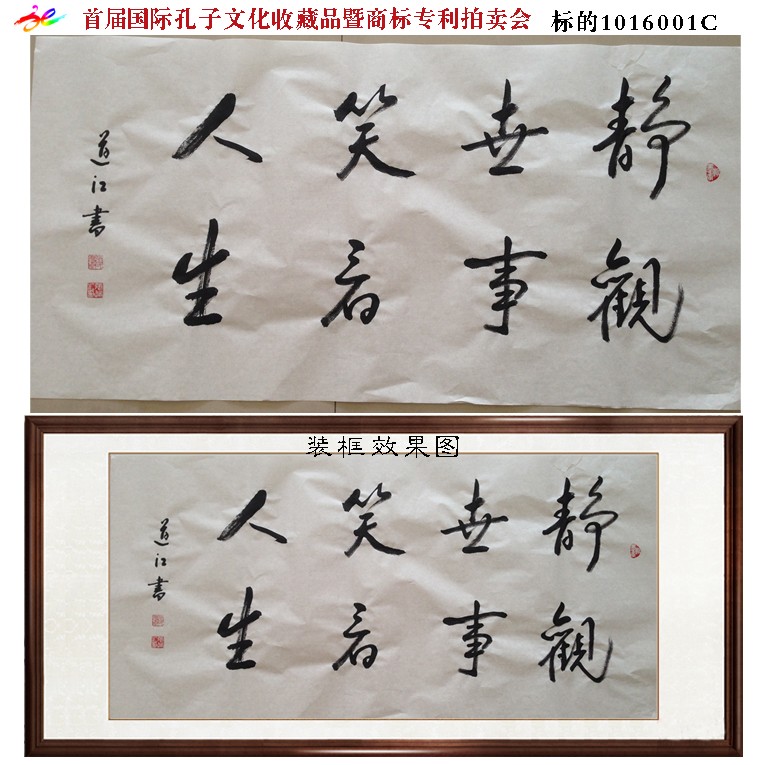 首届国际孔子文化收藏品暨商标专利拍卖会 标的1016001C
靜觀
世事
笑看
人生
道江書
装框效果图
靜觀
世事
笑看
人生
道江書